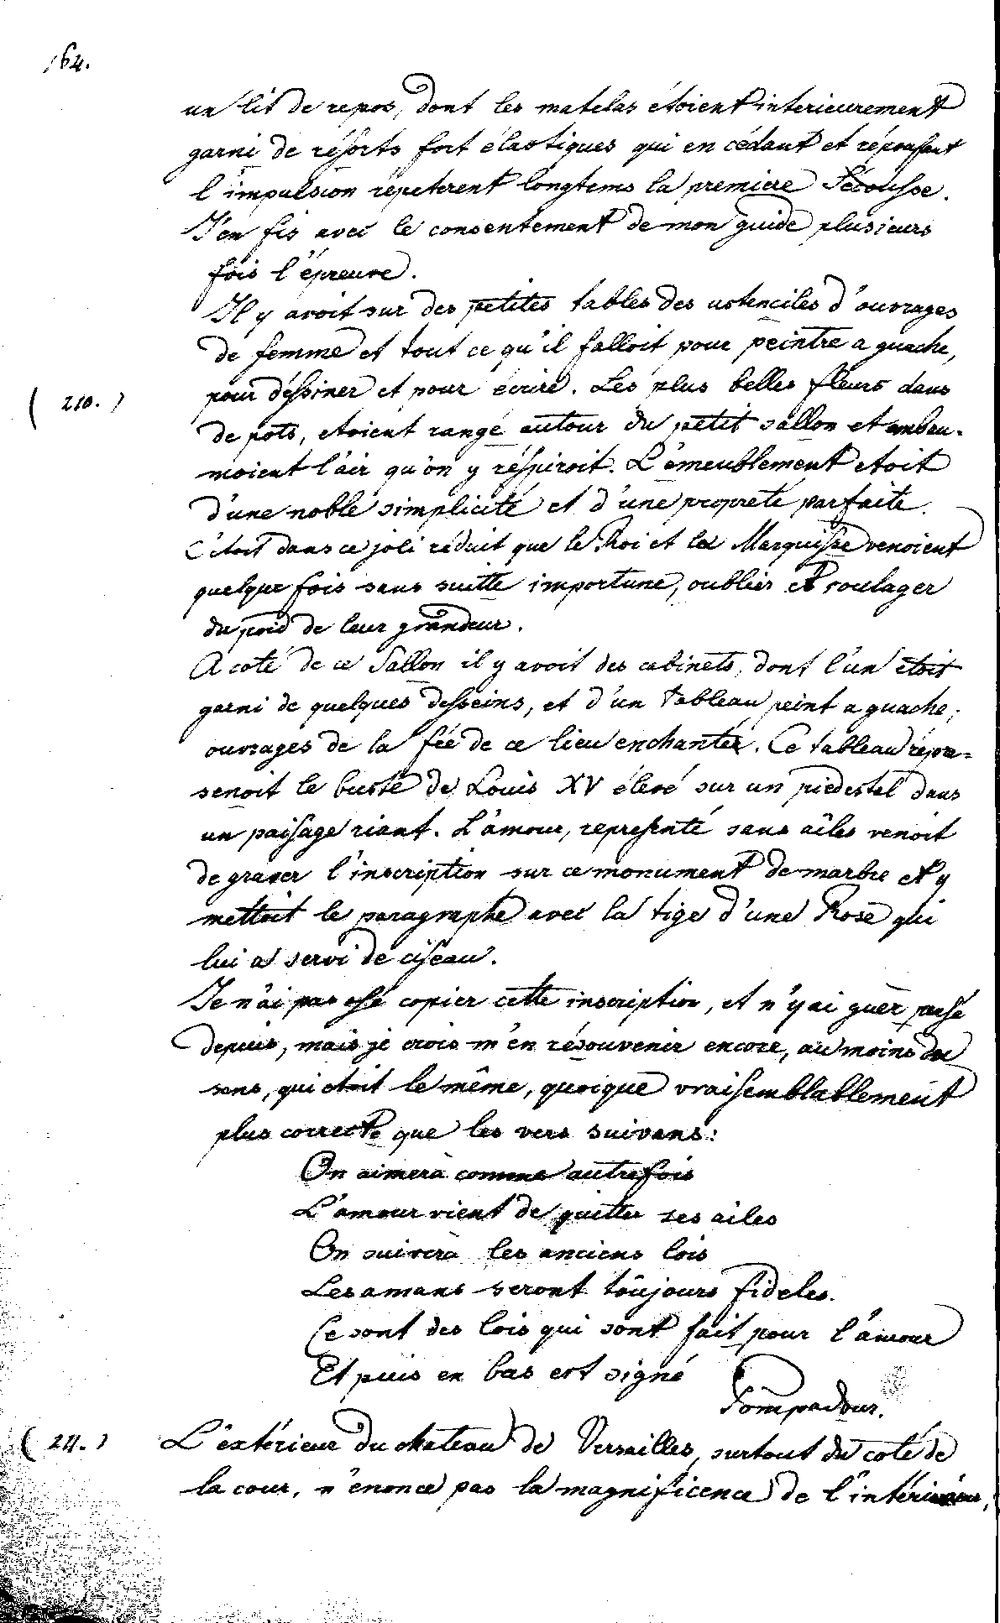 164.
un lit de repos, dont les matelas étoient interieurement
garni de résorts fort élastiques qui en cédant et répoussant
l'impulsion répeterent longtems la premiere sécousse.
J'en fis avec le consentement de mon guide plusieurs
fois l'épreuve.
Il y avoit sur des petites tables des ustenciles d'ouvrages
de femme et tout ce qu'il falloit pour peintre a guache,
pour déssiner et pour écrire. Les plus belles fleurs dans
( 210. )
de pots, etoient rangé autour du petit sallon et embau-
moient l'air qu'on y réspiroit. L'émeublement etoit
d'une noble simplicité et d'une propreté parfaite.
C'étoit dans ce joli réduit que le Roi et la Marquisse venoient
quelque fois sans suitte importune, oublier et soulager
du poid de leur grandeur.
A coté de ce Sallon il y avoit des cabinets, dont l'un étoit
garni de quelques desseins, et d'un tableau peint a guache;
ouvrages de la fée de ce lieu enchanter. Ce tableau répre-
senoit le buste de Louis XV élevé sur un piedestel dans
un paisage riant. L'amour, representé sans aîles venoit
de graver l'inscription sur ce monument de marbre et y
mettoit le paragraphe avec la tige d'une Rose qui
lui a servi de ciseau.
Je n'ai pas osé copier cette inscription, et n'y ai guèr pensé
depuis, mais je crois m'en résouvenir encore, au moins du
sens, qui étoit le même, quoique vraisemblablement
plus correcte que les vers suivans:
On aimera comme autrefois
L'amour vient de quitter ses ailes
On suivera les anciens lois
Les amans seront toûjours fideles.
Ce sont des lois qui sont fait pour l'amour
Et puis en bas est signé
Pompadour.
( 211. )
L'extérieur du chateau de Versailles, surtout du coté de
la cour, n'énonce pas la magnificence de l'intérieur,